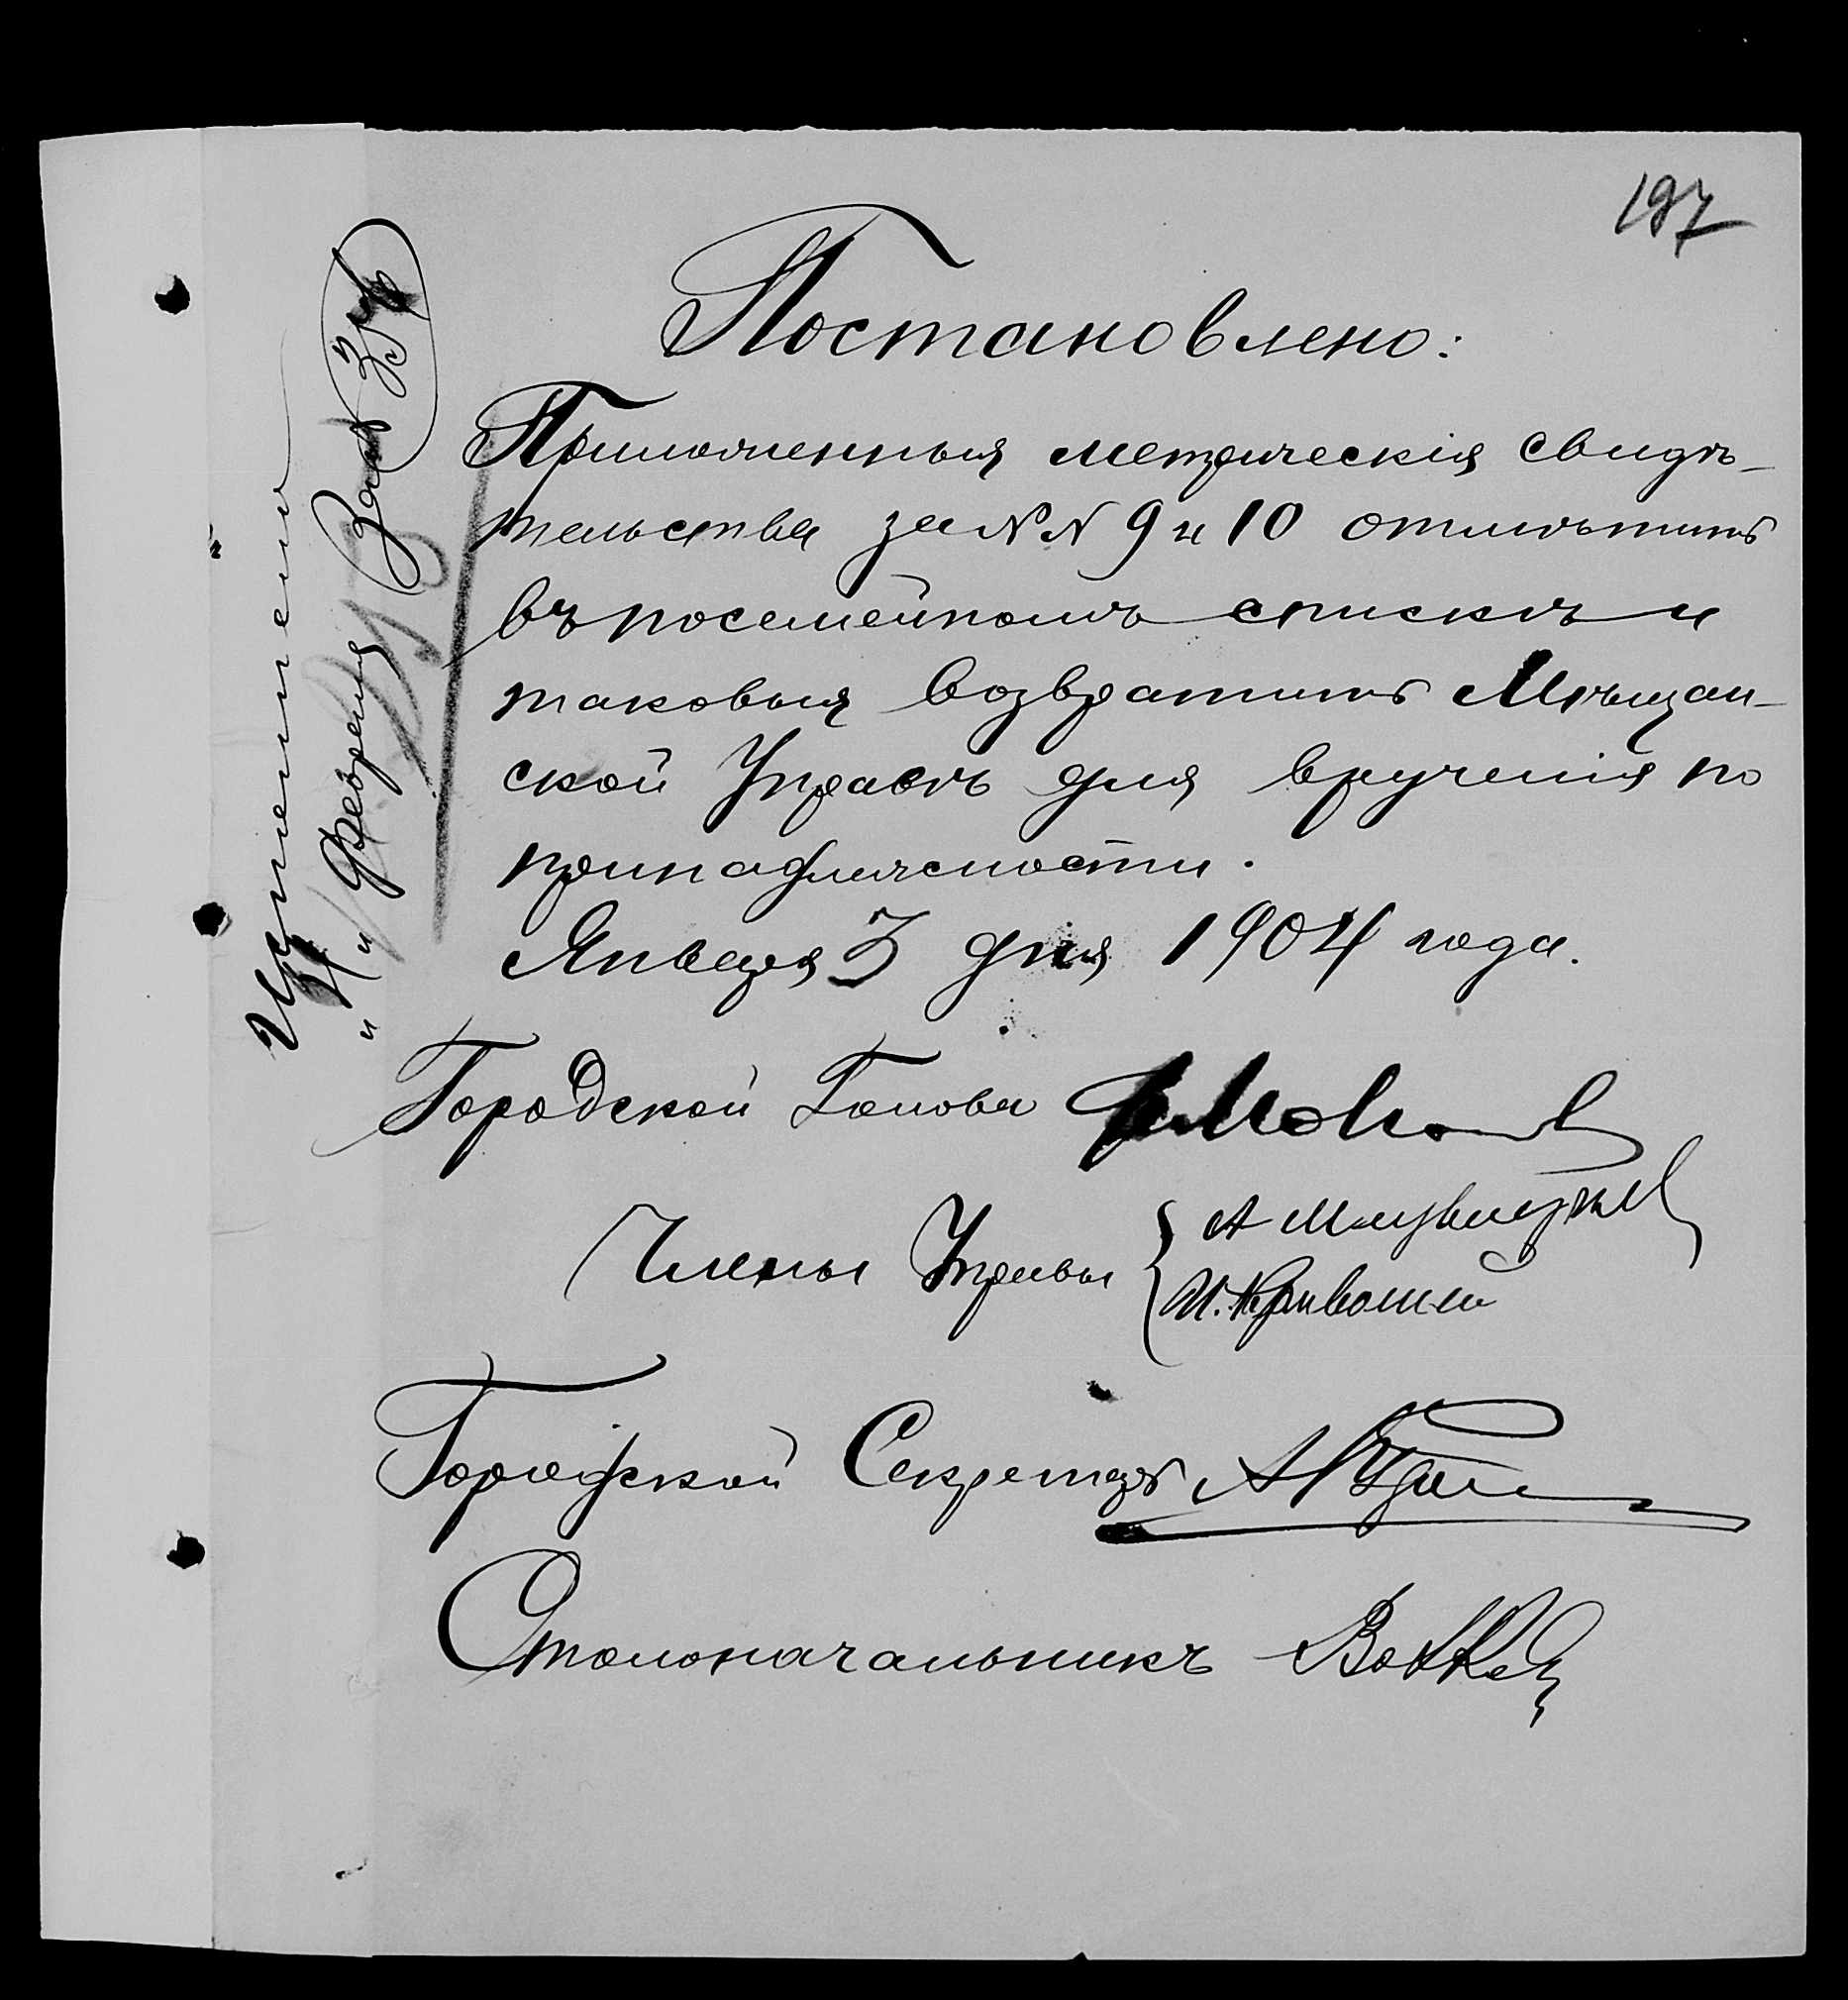 197
Постановлено:
Приложенныя метрическія свидѣ-
тельства за NN 9 и 10 отмѣтить
въ посемейномъ спискѣ и
таковыя возвратить Мѣщан-
ской Управѣ для врученія по
принадлежности.
Января 3 дня 1904 года.
Городской Голова
Члены Управы
Городской Секретарь
Столоначальникъ
Исполнено
"4" Февраля За №